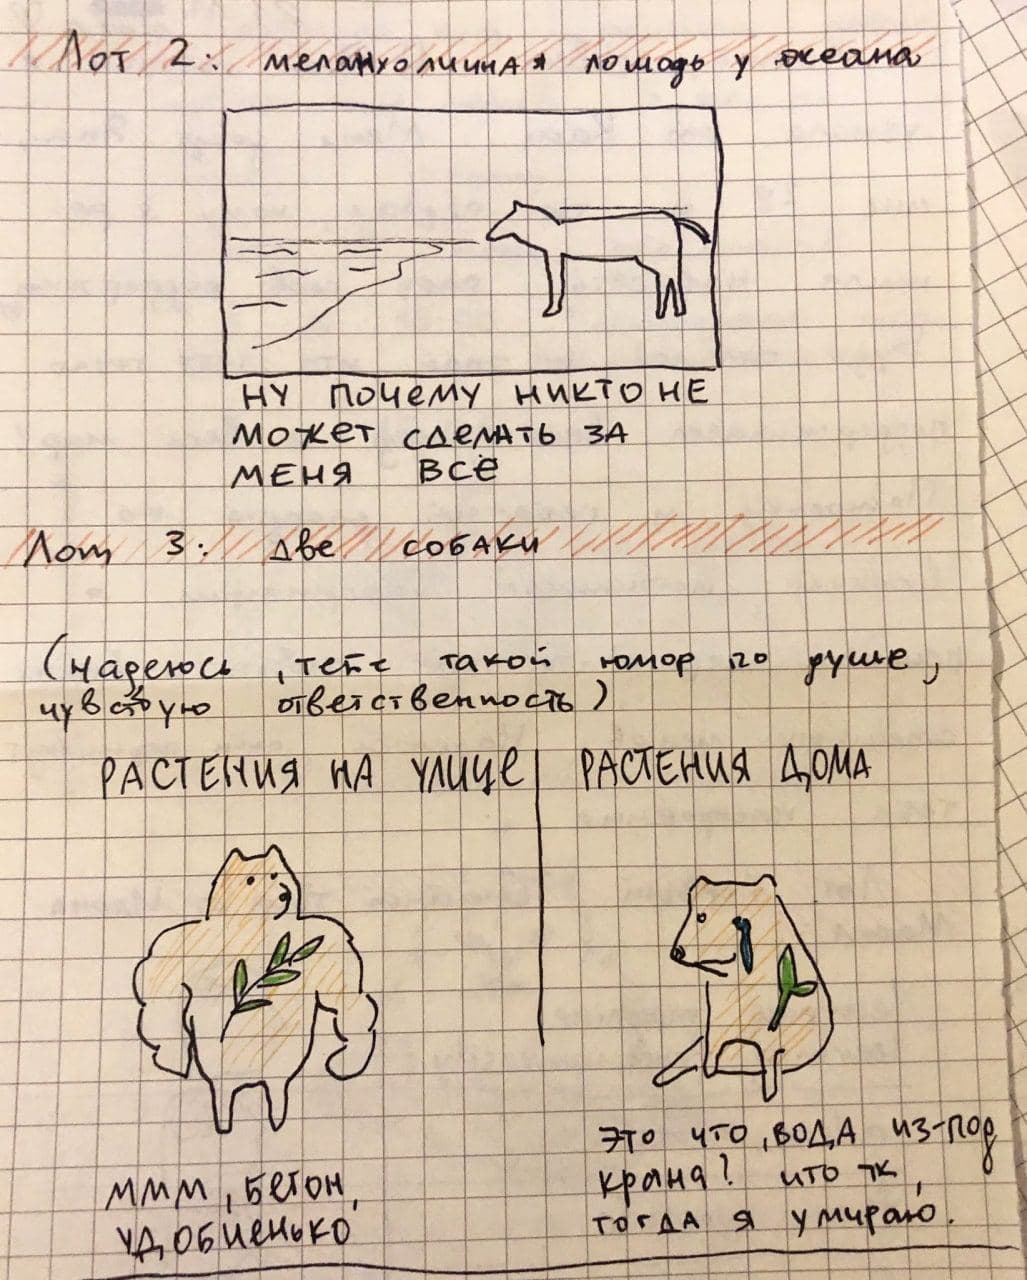 Лот 2: меланхоличная лошадь у океана
НУ ПОЧЕМУ НИКТО НЕ
МОЖЕТ СДЕЛАТЬ ЗА
МЕНЯ ВСЁ
Лот 3: две собаки
(надеюсь, тебе такой юмор по душе,
чувствую ответственность)
РАСТЕНИЯ НА УЛИЦЕ
РАСТЕНИЯ ДОМА
МММ, БЕТОН,
УДОБНЕНЬКО
ЭТО ЧТО, ВОДА ИЗ-ПОД
КРАНА? ЧТО Ж,
ТОГДА Я УМИРАЮ.